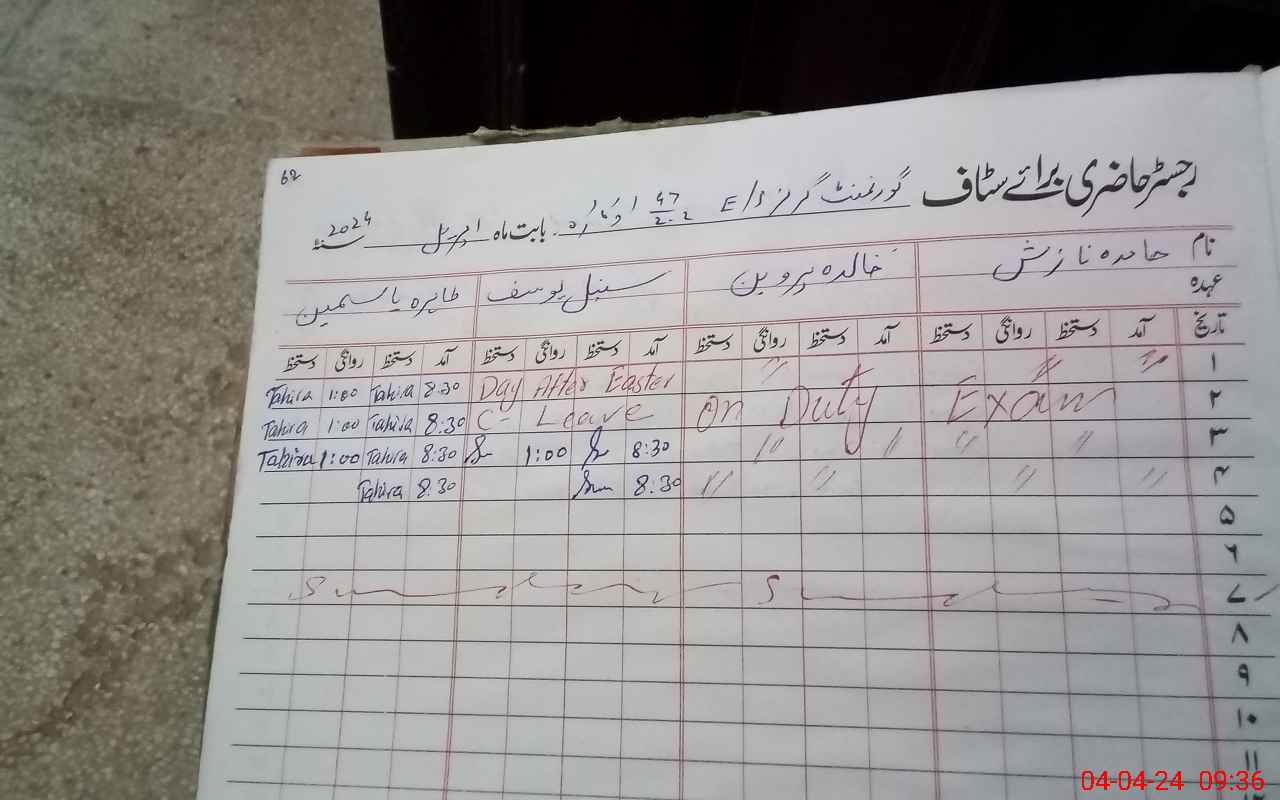 62
رجسٹر حاضری برائے سٹاف گورنمنٹ گرلز E/S 47/2-L اوکاڑہ بابت ماہ اپریل سنہ 2024
نام حامدہ نازش خالدہ پروین سنبل یوسف طاہرہ یاسمین
عہدہ
تاریخ آمد دستخط روانگی دستخط آمد دستخط روانگی دستخط آمد دستخط روانگی دستخط آمد دستخط روانگی دستخط
۱ " " " Day After Easter 8.30 Tahira 1:00 Tahira
۲ On Duty Exam C- Leave 8:30 Tahira 1:00 Tahira
۳ " " " " 8:30 1:00 8:30 Tahira 1:00 Tahira
۴ " " " " 8:30 8.30 Tahira
۵
۶
۷ Sunday Sunday
۸
۹
۱۰
۱۱
04-04-24 09:36